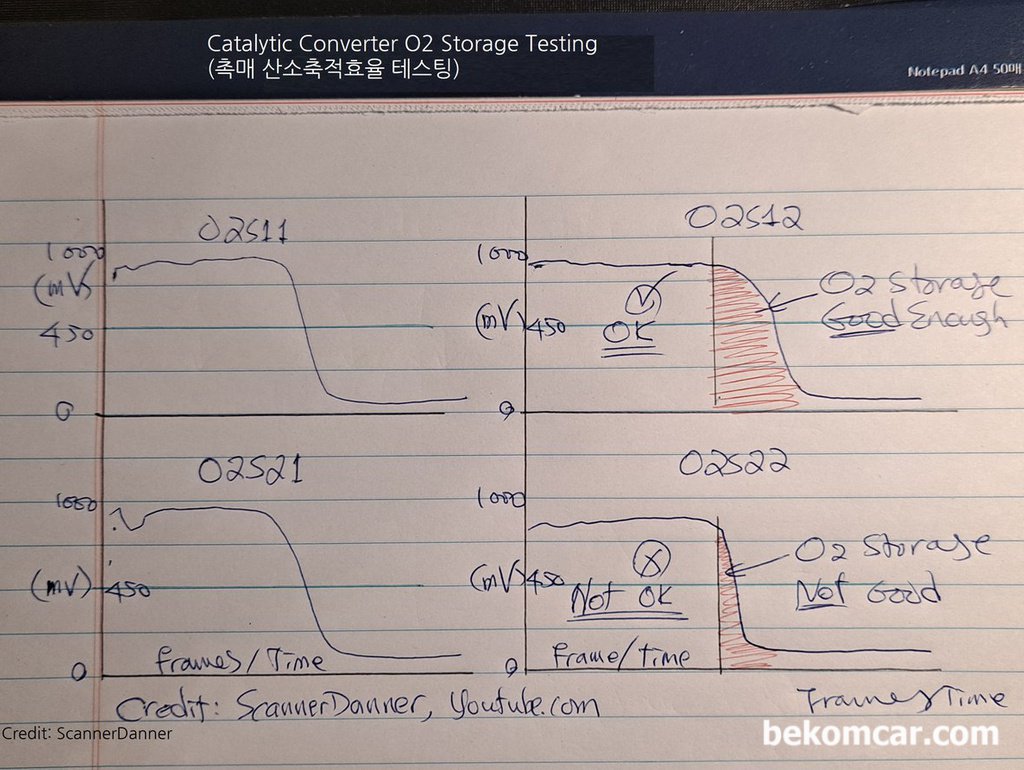 Catalytic Converter O2 Storage Testing
(촉매 산소축적효율 테스팅)
Notepad A4 50매
O2S11
1000
(mV)
450
0
O2S12
1000
(mV) 450
0
OK
O2 Storage
Good Enough
O2S21
1000
(mV) 450
0
Frames/Time
O2S22
1000
(mV) 450
0
Not OK
O2 Storage
Not Good
Frame/Time
Frames/Time
Credit: ScannerDanner, Youtube.com
Credit: ScannerDanner
bekomcar.com